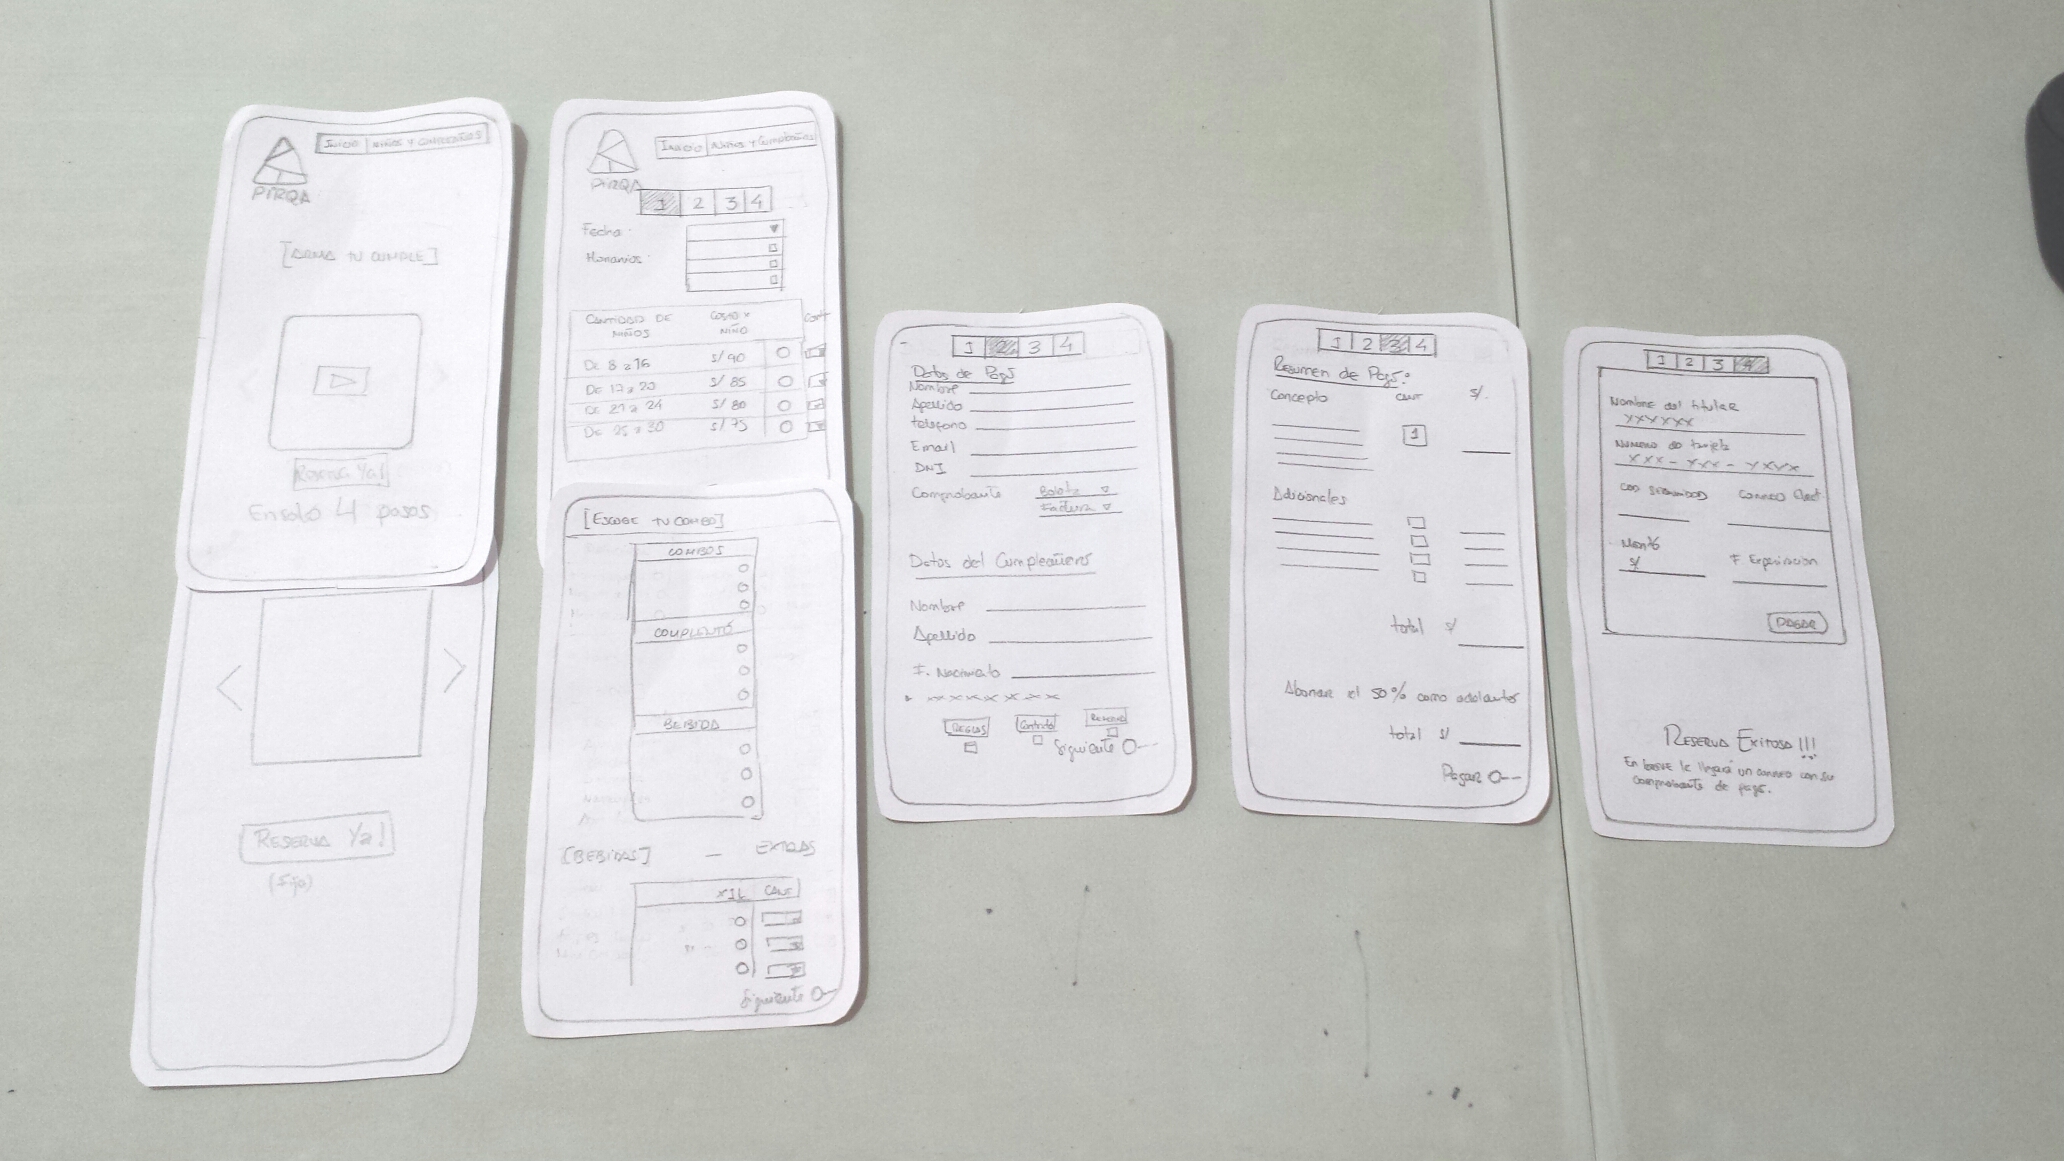 INICIO NIÑOS Y CUMPLEAÑOS
PIRQA
[ARMA TU CUMPLE]
Reserva Ya!
En solo 4 pasos
< >
RESERVA Ya!
(Fijo)
INICIO NIÑOS Y Cumpleaños
PIRQA
1 2 3 4
Fecha:
Horarios:
CANTIDAD DE NIÑOS COSTO x NIÑO CANT
DE 8 a 16 S/ 90
DE 17 a 20 S/ 85
DE 21 a 24 S/ 80
DE 25 a 30 S/ 75
[ESCOGE TU COMBO]
COMBOS
COMPLENTO
BEBIDA
[BEBIDAS] — EXTRAS
x1L CANT
Siguiente
1 2 3 4
Datos de Pago
Nombre
Apellido
telefono
Email
DNI
Comprobante Boleta
Factura
Datos del Cumpleañero
Nombre
Apellido
F. Nacimiento
* xxxxxxx
REGLAS Contrato
Siguiente
1 2 3 4
Resumen de Pago:
Concepto CANT S/.
1
Adicionales
total S/
Abonar el 50% como adelanto
total S/
Pagar
1 2 3 4
Nombre del titular
XXYXXXX
Numero de tarjeta
XXX - YXX - YXYX
COD SEGURIDAD CORREO Elect.
Monto F. Expiracion
S/
PAGAR
RESERVA EXITOSA!!!
En breve le llegará un correo con su
comprobante de pago.